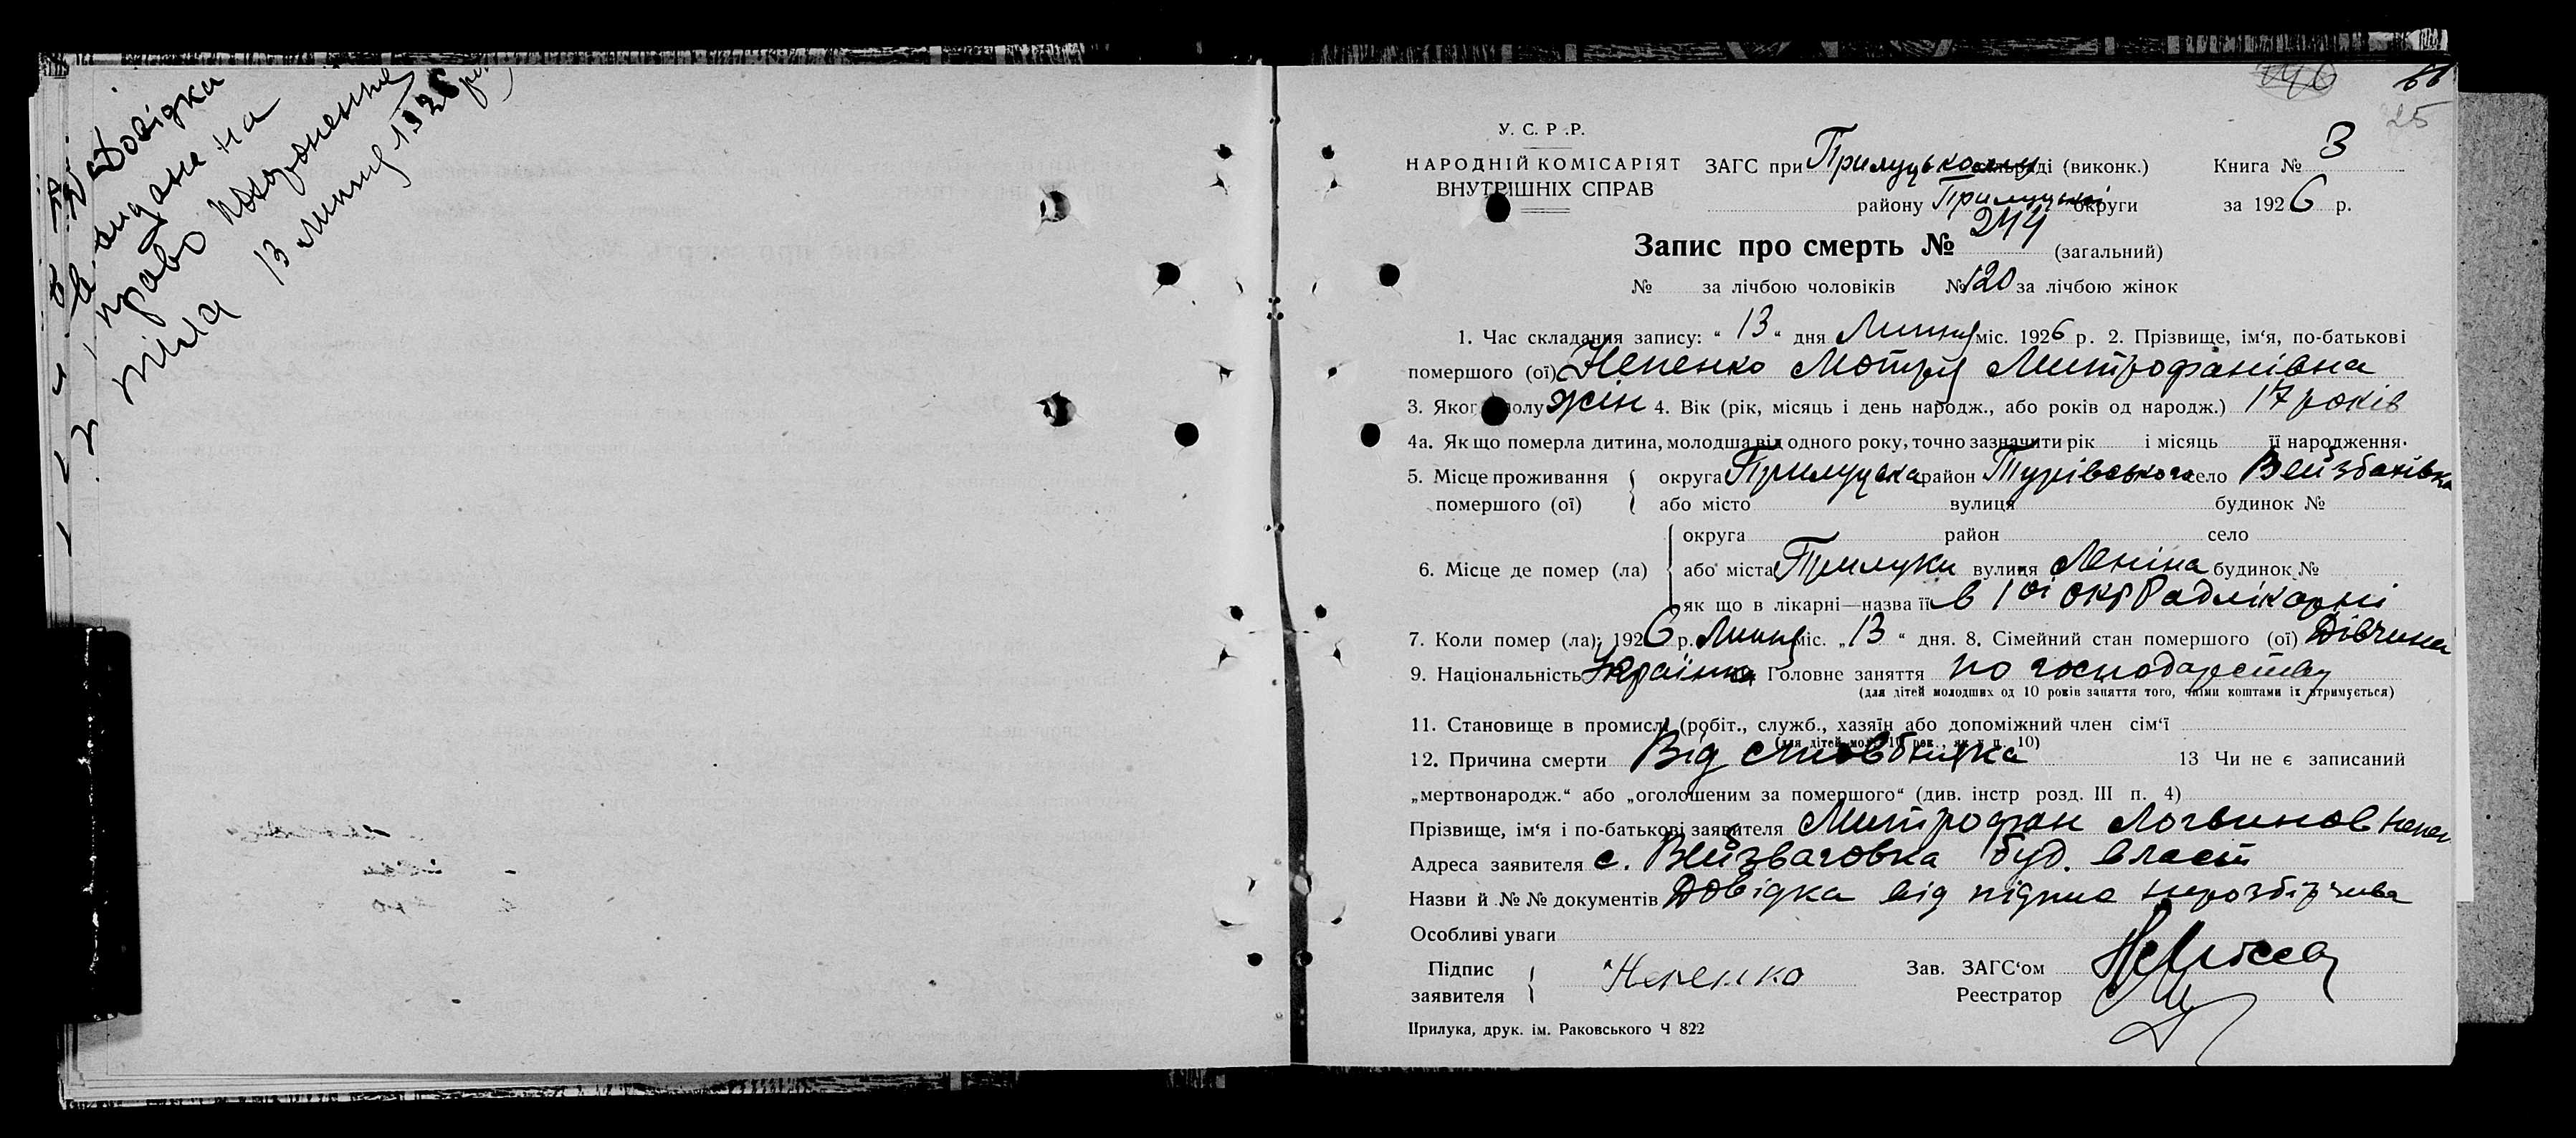 Довідка
видана на
право похоронення
тіла 13 липня 1926 р.
240
88
25
У. С. Р. Р.
НАРОДНІЙ КОМІСАРІЯТ
ВНУТРІШНІХ СПРАВ
ЗАГС при Прилуцькому сільраді (виконк.)
району Прилуцької округи
Книга № 3
за 1926 р.
Запис про смерть № 244 (загальний)
№ за лічбою чоловіків № 120 за лічбою жінок
1. Час складання запису: “ 13 “ дня Липня міс. 1926 р. 2. Прізвище, ім‘я, по-батькові
помершого (ої) Непенко Мотря Митрофанівна
3. Якого полу жін 4. Вік (рік, місяць і день народж., або років од народж.) 17 років
4а. Як що померла дитина, молодша від одного року, точно зазначити рік і місяць її народження.
5. Місце проживання округа Прилуцька район Турівського село Вейзбахівка
помершого (ої) або місто вулиця будинок №
округа район село
6. Місце де помер (ла) або міста Прилуки вулиця Леніна будинок №
як що в лікарні—назва її в 1ой окр Радлікарні
7. Коли помер (ла); 1926 р. Липня міс. „ 13 “ дня. 8. Сімейний стан помершого (ої) Дівчина
9. Національність Українка Головне заняття по господарству
(для дітей молодших од 10 років заняття того, чиїми коштами їх утримується)
11. Становище в промислі (робіт., служб., хазяїн або допоміжний член сім‘ї
(для дітей мол. 10 рок., як у п. 10)
12. Причина смерти Від стовбняка 13 Чи не є записаний
„мертвонародж.“ або „оголошеним за помершого“ (див. інстр розд. III п. 4)
Прізвище, ім‘я і по-батькові заявителя Митрофан Логвинов Непен
Адреса заявителя с. Вейзваговка буд. власт
Назви й №№ документів Довідка від підпис нерозбірчива
Особливі уваги
Підпис
заявителя Непенко
Зав. ЗАГС‘ом
Реестратор
Прилука, друк. ім. Раковського Ч 822